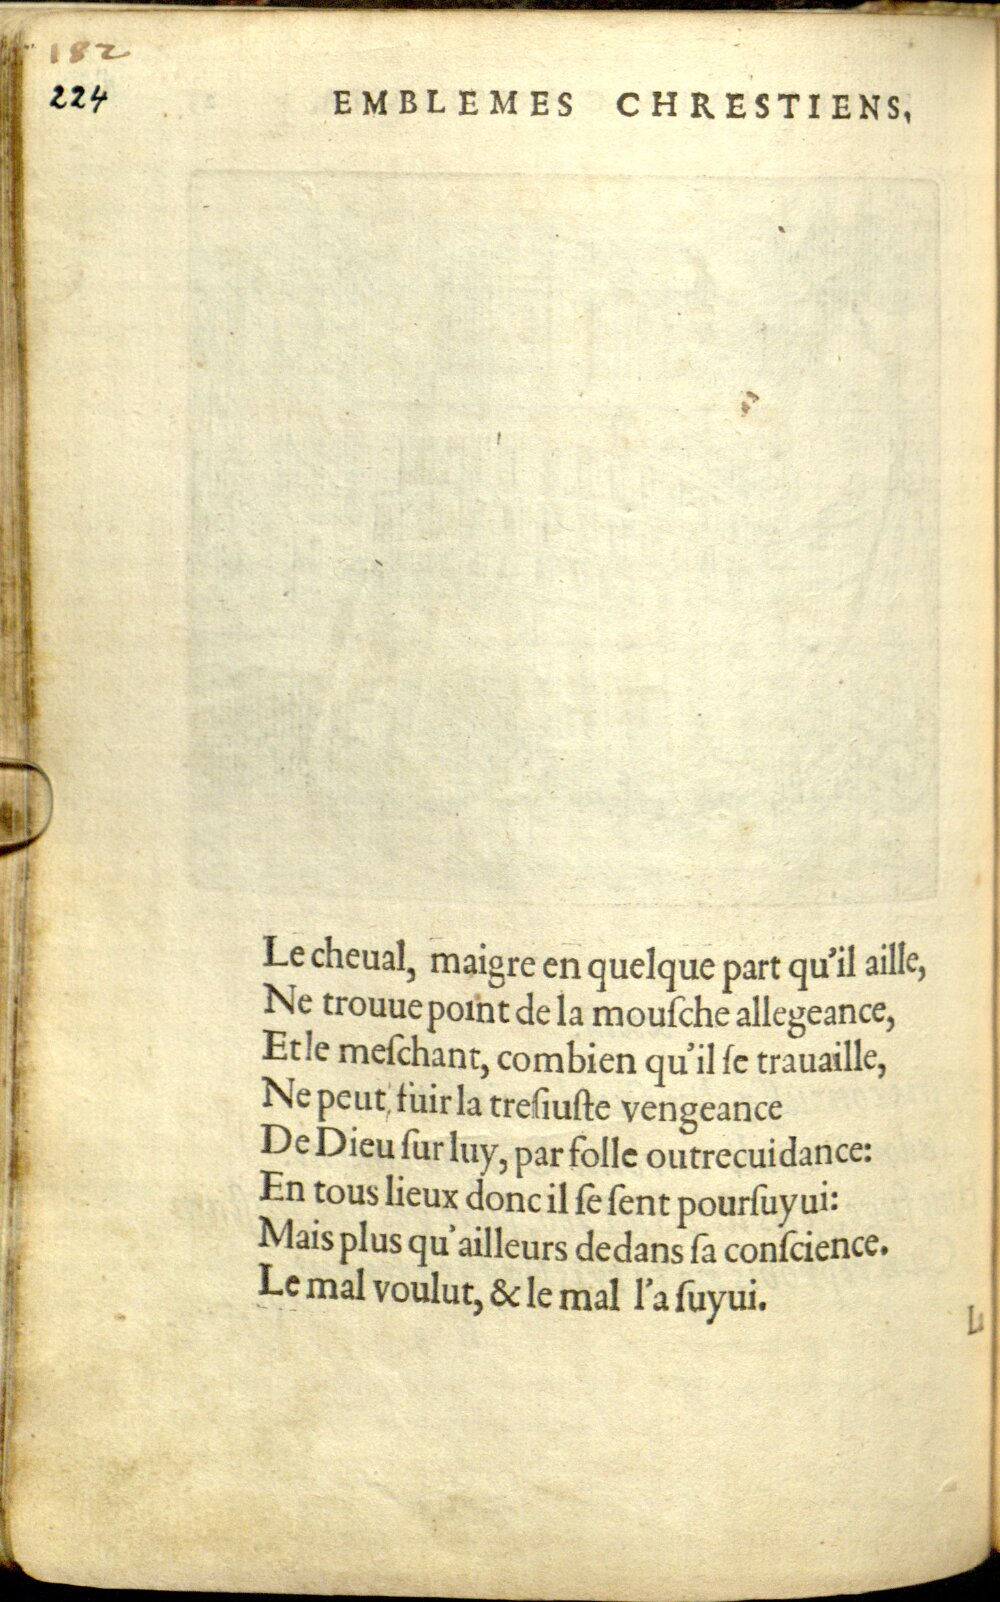 182
224
EMBLEMES CHRESTIENS,
Le cheual, maigre en quelque part qu'il aille,
Ne trouue point de la mouſche allegeance,
Et le meſchant, combien qu'il ſe trauaille,
Ne peut fuir la treſiuſte vengeance
De Dieu ſur luy, par folle outrecuidance:
En tous lieux donc il ſe ſent pourſuyui:
Mais plus qu'ailleurs dedans ſa conſcience.
Le mal voulut, & le mal l'a ſuyui.